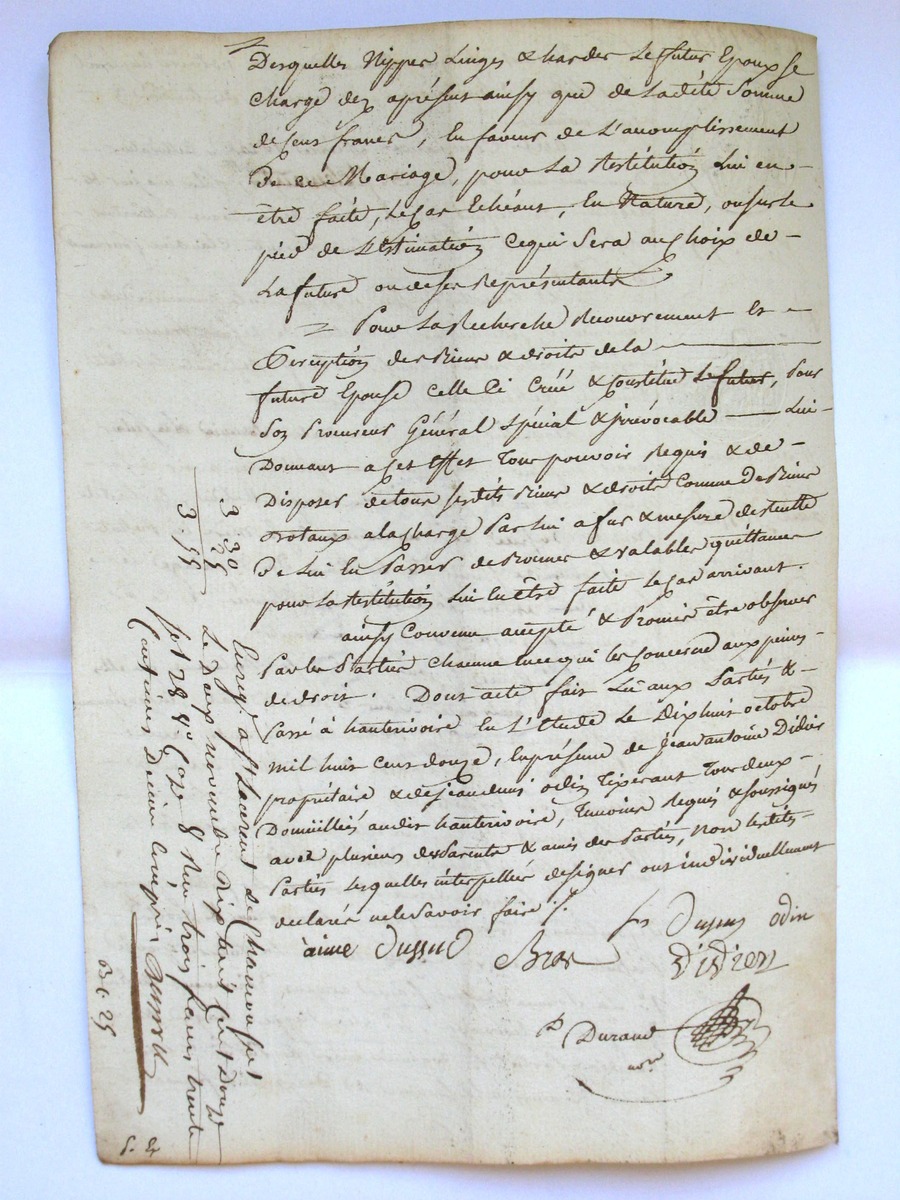 Desquelles Nippes Linges & hardes Le futur Epoux se
charge dez aprésent ainsy que de La ditte Somme
de Cens francs, En faveur de L'acomplissement
De ce Mariage, pour La Restitution Lui en
être faite, le Cas Echéant, En Nature, ou sur le
pied de L'Estimation Ce qui Sera au Choix de
La future ou de ses Représentants
Pour La Recherche Recouvrement Et
Perception des Biens & droits de la
future Epouse Celle Ci Créé & Constitue Le futur, pour
Son Procureur Général Spécial & irrévocable Lui
Donnant a Cet Effet Tout pouvoir Requis & de
Disposer de tous ses dits Biens & droits Comme De Biens
Dotaux a la Charge Par Lui a fur & mesure de
De Lui En Passer de Bonnes & valables quittances
pour La Restitution Lui En être faite le Cas arrivant.
ainsy Convenu accepté & Promis être observer
Par les Parties chacune En ce qui les Concerne aux peines
de droit. Dont acte fait Lu aux Parties &
Passé à hauterivoire En L'Etude Le Dix huit octobre
mil huit Cent douze, En présence de Jean antoine Didier
propriétaire & de Jean denis odin Tixerant Tous deux
Domiciliés audit hauterivoire, Temoins Requis & soussignés
avec plusieurs des Parents & amis des Parties, Non les dits
Parties Lesquelles interpellées de signer ont individuellement
déclarés ne le Savoir faire ./.
Dussud odin
aimé Dussud Bras Didier
Durand
nore
3. 30
3. 55
Enreg. a St Laurent de Chamousset
Le Deux novembre dix huit Cent Douze
fot 28 Vo Case 8 Reçu trois francs trente
Centimes Decime Compris